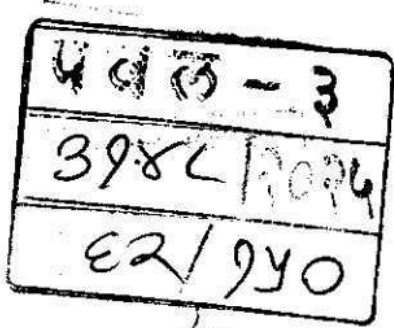 प व ल - ३
३१४८/२०२५
६२/१५०